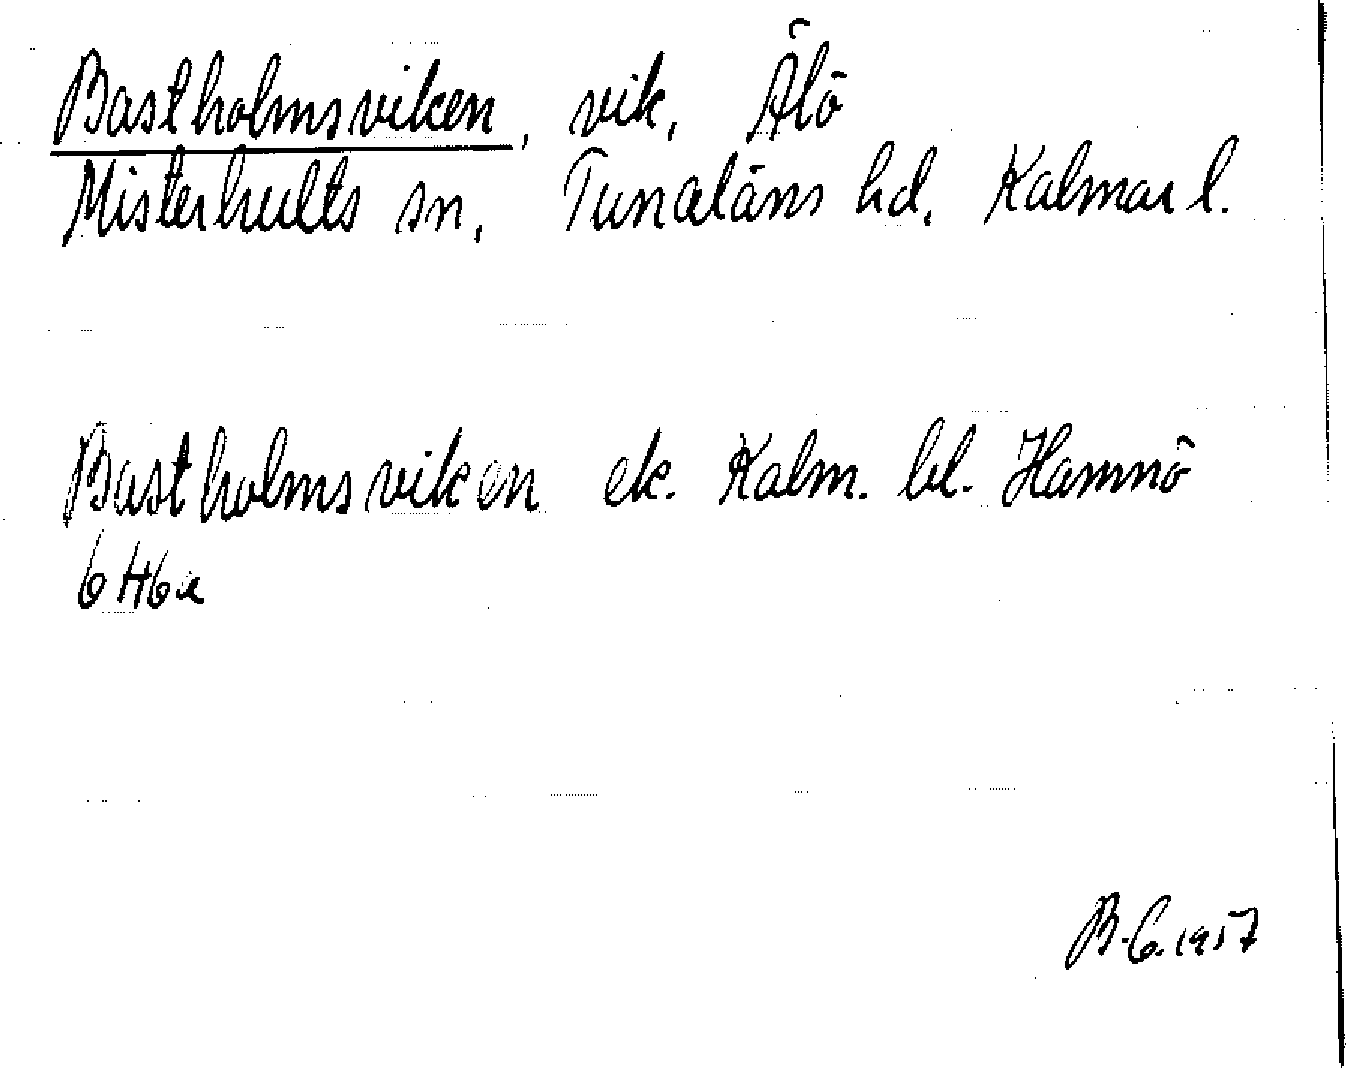 Bastholmsviken, vik, Älö
Misterhults sn, Tunaläns hd, Kalmar l.
Bastholmsviken ek. Kalm. bl. Hamnö
6 H6a
B.G. 1957